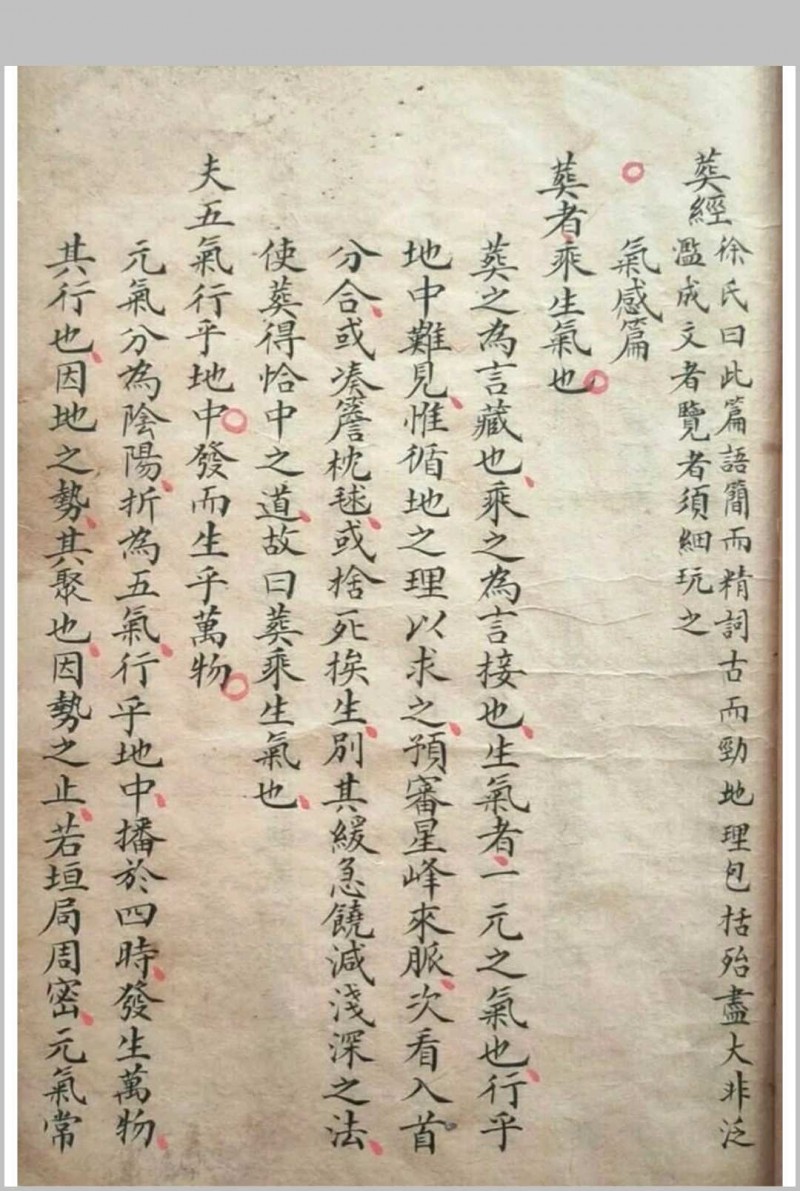 葬經 徐氏曰此篇語簡而精詞古而勁地理包括殆盡大非泛
濫成文者覽者須細玩之
氣感篇
葬者乘生氣也
葬之為言藏也乘之為言接也生氣者一元之氣也行乎
地中難見惟循地之理以求之預審星峰來脈次看入首
分合或凑簷枕毬或捨死挨生別其緩急饒減淺深之法
使葬得恰中之道故曰葬乘生氣也
夫五氣行乎地中發而生乎萬物
元氣分為陰陽折為五氣行乎地中播於四時發生萬物
其行也因地之勢其聚也因勢之止若垣局周密元氣常